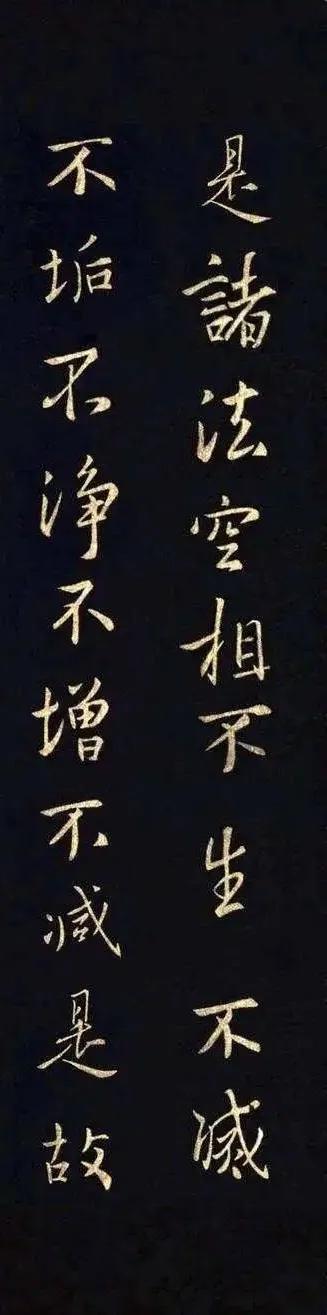 是諸法空相不生不滅
不垢不淨不增不減是故